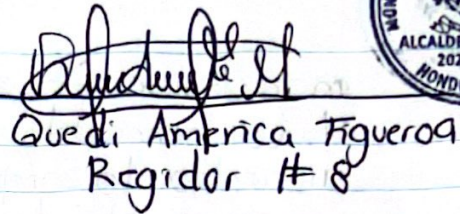 ALCALD
202
HOND
Quedi América Figueroa
Regidor # 8